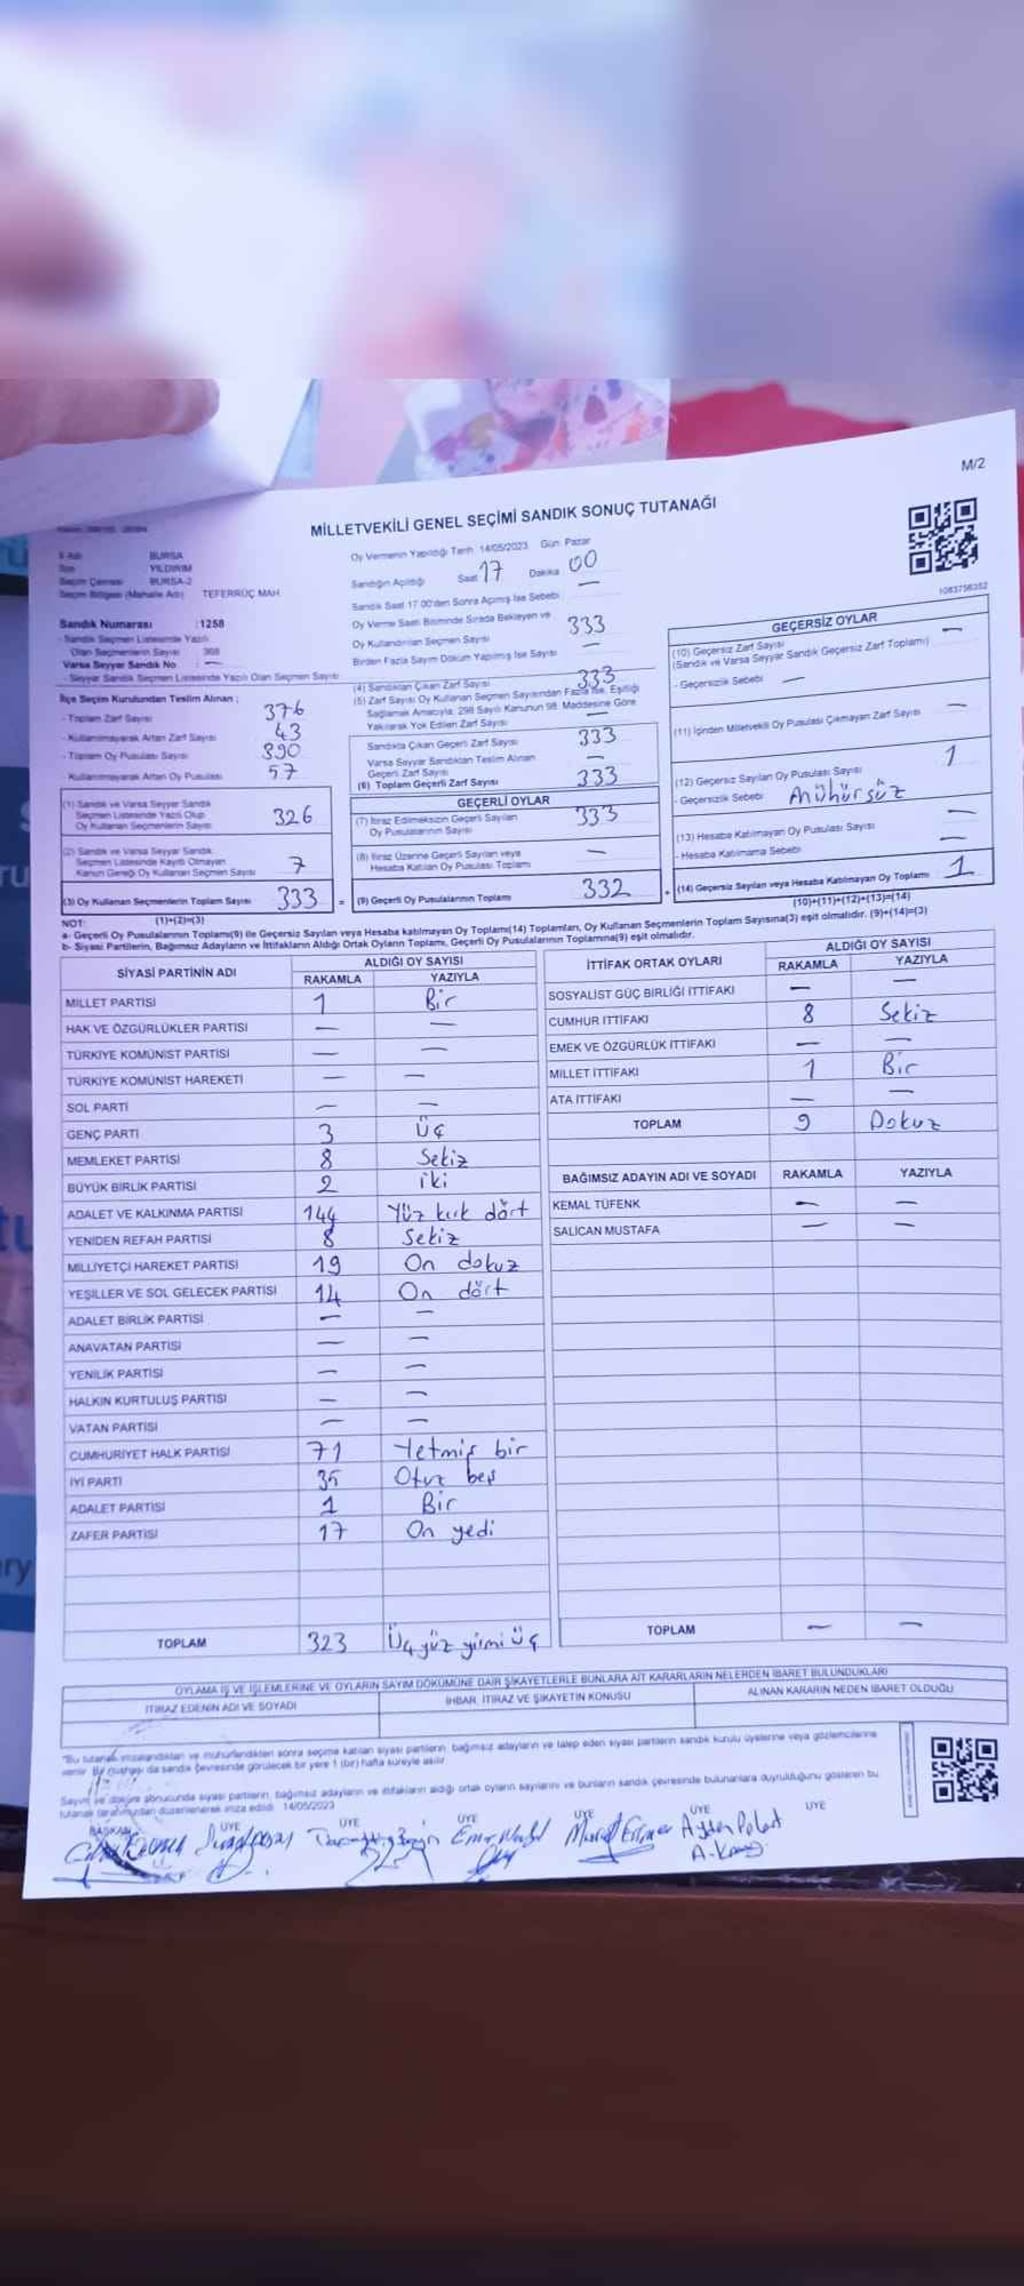 M/2
MİLLETVEKİLİ GENEL SEÇİMİ SANDIK SONUÇ TUTANAĞI
BURSA
YILDIRIM
Seçim Çevresi BURSA-2
Seçim Bölgesi (Mahalle Adı) TEFERRÜÇ MAH.
Sandık Numarası :1258
- Sandık Seçmen Listesinde Yazılı
Olan Seçmenlerin Sayısı 368
Varsa Seyyar Sandık No : —
- Seyyar Sandık Seçmen Listesinde Yazılı Olan Seçmen Sayısı
İlçe Seçim Kurulundan Teslim Alınan ;
- Toplam Zarf Sayısı 376
- Kullanılmayarak Artan Zarf Sayısı 43
- Toplam Oy Pusulası Sayısı 390
- Kullanılmayarak Artan Oy Pusulası 57
(1) Sandık ve Varsa Seyyar Sandık
Seçmen Listesinde Yazılı Olup
Oy Kullanan Seçmenlerin Sayısı 326
(2) Sandık ve Varsa Seyyar Sandık
Seçmen Listesinde Kayıtlı Olmayan
Kanun Gereği Oy Kullanan Seçmen Sayısı 7
(3) Oy Kullanan Seçmenlerin Toplam Sayısı 333 =
(1)+(2)=(3)
Oy Vermenin Yapıldığı Tarih: 14/05/2023 Gün: Pazar
Sandığın Açıldığı Saat 17 Dakika 00
Sandık Saat 17.00'den Sonra Açılmış İse Sebebi : —
Oy Verme Saati Bitiminde Sırada Bekleyen ve
Oy Kullandırılan Seçmen Sayısı 333
Birden Fazla Sayım Döküm Yapılmış İse Sayısı —
(4) Sandıktan Çıkan Zarf Sayısı 333
(5) Zarf Sayısı Oy Kullanan Seçmen Sayısından Fazla İse, Eşitliği
Sağlamak Amacıyla, 298 Sayılı Kanunun 98. Maddesine Göre
Yakılarak Yok Edilen Zarf Sayısı —
Sandıkta Çıkan Geçerli Zarf Sayısı 333
Varsa Seyyar Sandıktan Teslim Alınan
Geçerli Zarf Sayısı —
(6) Toplam Geçerli Zarf Sayısı 333
GEÇERLİ OYLAR
(7) İtiraz Edilmeksizin Geçerli Sayılan
Oy Pusulalarının Sayısı 333
(8) İtiraz Üzerine Geçerli Sayılan veya
Hesaba Katılan Oy Pusulası Toplamı —
(9) Geçerli Oy Pusulalarının Toplamı 332 +
1083756352
GEÇERSİZ OYLAR
(10) Geçersiz Zarf Sayısı —
(Sandık ve Varsa Seyyar Sandık Geçersiz Zarf Toplamı)
- Geçersizlik Sebebi —
(11) İçinden Milletvekili Oy Pusulası Çıkmayan Zarf Sayısı —
(12) Geçersiz Sayılan Oy Pusulası Sayısı 1
- Geçersizlik Sebebi Mühürsüz
(13) Hesaba Katılmayan Oy Pusulası Sayısı —
- Hesaba Katılmama Sebebi —
(14) Geçersiz Sayılan veya Hesaba Katılmayan Oy Toplamı 1
(10)+(11)+(12)+(13)=(14)
NOT:
a- Geçerli Oy Pusulalarının Toplamı(9) ile Geçersiz Sayılan veya Hesaba katılmayan Oy Toplamı(14) Toplamları, Oy Kullanan Seçmenlerin Toplam Sayısına(3) eşit olmalıdır. (9)+(14)=(3)
b- Siyasi Partilerin, Bağımsız Adayların ve İttifakların Aldığı Ortak Oyların Toplamı, Geçerli Oy Pusulalarının Toplamına(9) eşit olmalıdır.
SİYASİ PARTİNİN ADI ALDIĞI OY SAYISI
RAKAMLA YAZIYLA
MİLLET PARTİSİ 1 Bir
HAK VE ÖZGÜRLÜKLER PARTİSİ — —
TÜRKİYE KOMÜNİST PARTİSİ — —
TÜRKİYE KOMÜNİST HAREKETİ — —
SOL PARTİ — —
GENÇ PARTİ 3 Üç
MEMLEKET PARTİSİ 8 Sekiz
BÜYÜK BİRLİK PARTİSİ 2 iki
ADALET VE KALKINMA PARTİSİ 144 Yüz kırk dört
YENİDEN REFAH PARTİSİ 8 Sekiz
MİLLİYETÇİ HAREKET PARTİSİ 19 On dokuz
YEŞİLLER VE SOL GELECEK PARTİSİ 14 On dört
ADALET BİRLİK PARTİSİ — —
ANAVATAN PARTİSİ — —
YENİLİK PARTİSİ — —
HALKIN KURTULUŞ PARTİSİ — —
VATAN PARTİSİ — —
CUMHURİYET HALK PARTİSİ 71 Yetmiş bir
İYİ PARTİ 35 Otuz beş
ADALET PARTİSİ 1 Bir
ZAFER PARTİSİ 17 On yedi
TOPLAM 323 Üç yüz yirmi üç
İTTİFAK ORTAK OYLARI ALDIĞI OY SAYISI
RAKAMLA YAZIYLA
SOSYALİST GÜÇ BİRLİĞİ İTTİFAKI — —
CUMHUR İTTİFAKI 8 Sekiz
EMEK VE ÖZGÜRLÜK İTTİFAKI — —
MİLLET İTTİFAKI 1 Bir
ATA İTTİFAKI — —
TOPLAM 9 Dokuz
BAĞIMSIZ ADAYIN ADI VE SOYADI RAKAMLA YAZIYLA
KEMAL TÜFENK — —
SALİCAN MUSTAFA — —
TOPLAM — —
OYLAMA İŞ VE İŞLEMLERİNE VE OYLARIN SAYIM DÖKÜMÜNE DAİR ŞİKAYETLERLE BUNLARA AİT KARARLARIN NELERDEN İBARET BULUNDUKLARI
İTİRAZ EDENİN ADI VE SOYADI İHBAR, İTİRAZ VE ŞİKAYETİN KONUSU ALINAN KARARIN NEDEN İBARET OLDUĞU
"Bu tutanak imzalandıktan ve mühürlendikten sonra seçime katılan siyasi partilerin, bağımsız adayların ve talep eden siyasi partilerin sandık kurulu üyelerine veya gözlemcilerine
verilir. Bir nüshası da sandık çevresinde görülecek bir yere 1 (bir) hafta süreyle asılır.
Sayım ve döküm sonucunda siyasi partilerin, bağımsız adayların ve ittifakların aldığı ortak oyların sayılarını ve bunların sandık çevresinde bulunanlara duyrulduğunu gösteren bu
tutanak tarafımızdan düzenlenerek imza edildi. 14/05/2023
BAŞKAN ÜYE ÜYE ÜYE ÜYE ÜYE ÜYE
Ayten Polat